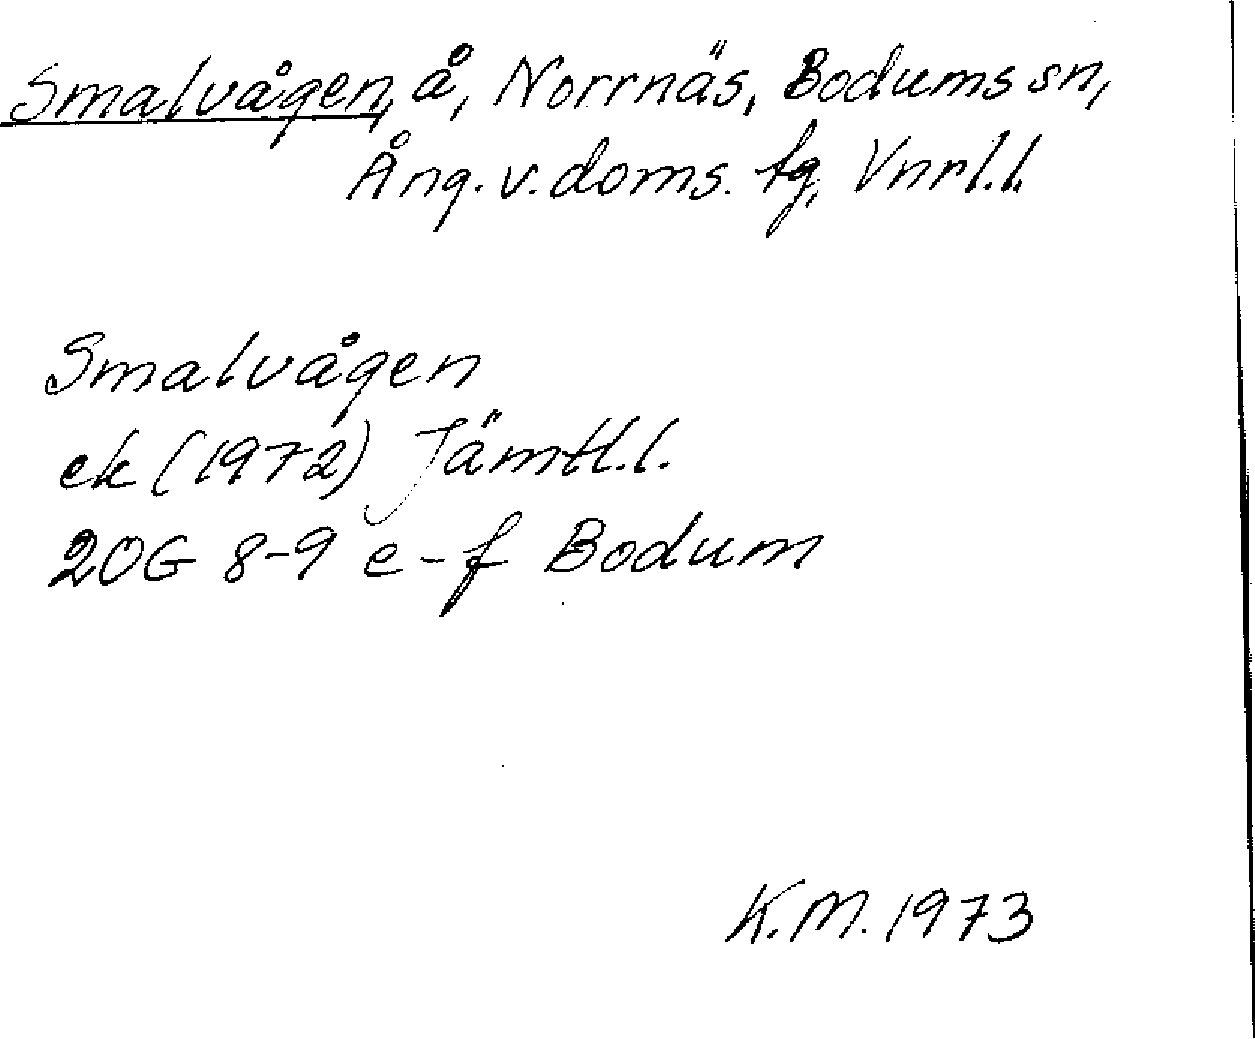 Smalvågen, å, Norrnäs, Bodums sn,
Ång. v. doms. tg, Vnrl. l.
Smalvågen
ek (1972) Jämtl. l.
20G 8-9 e-f Bodum
K.M. 1973